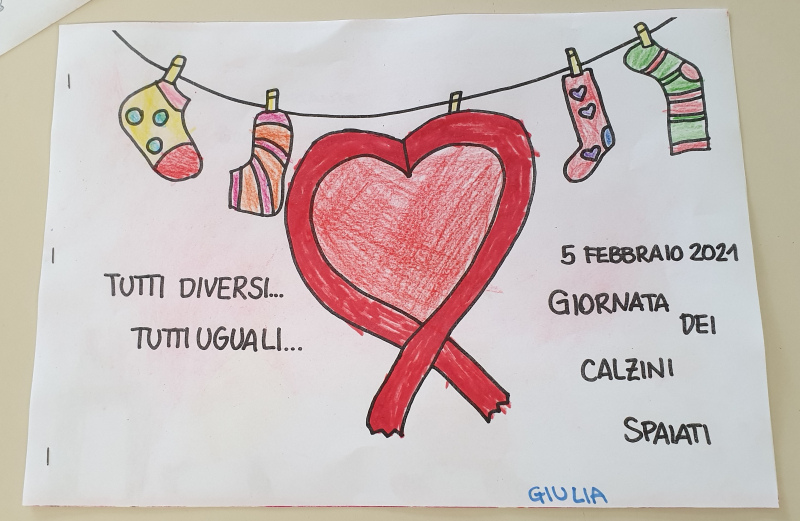 TUTTI DIVERSI...
TUTTI UGUALI...
5 FEBBRAIO 2021
GIORNATA
DEI
CALZINI
SPAIATI
GIULIA